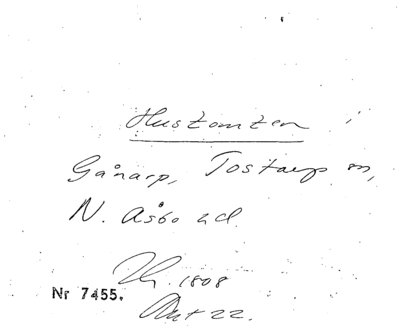 Hustomten i
Gånarp, Tostarp sn,
N. Åsbo hd.
1808
Nr 7455.
22.